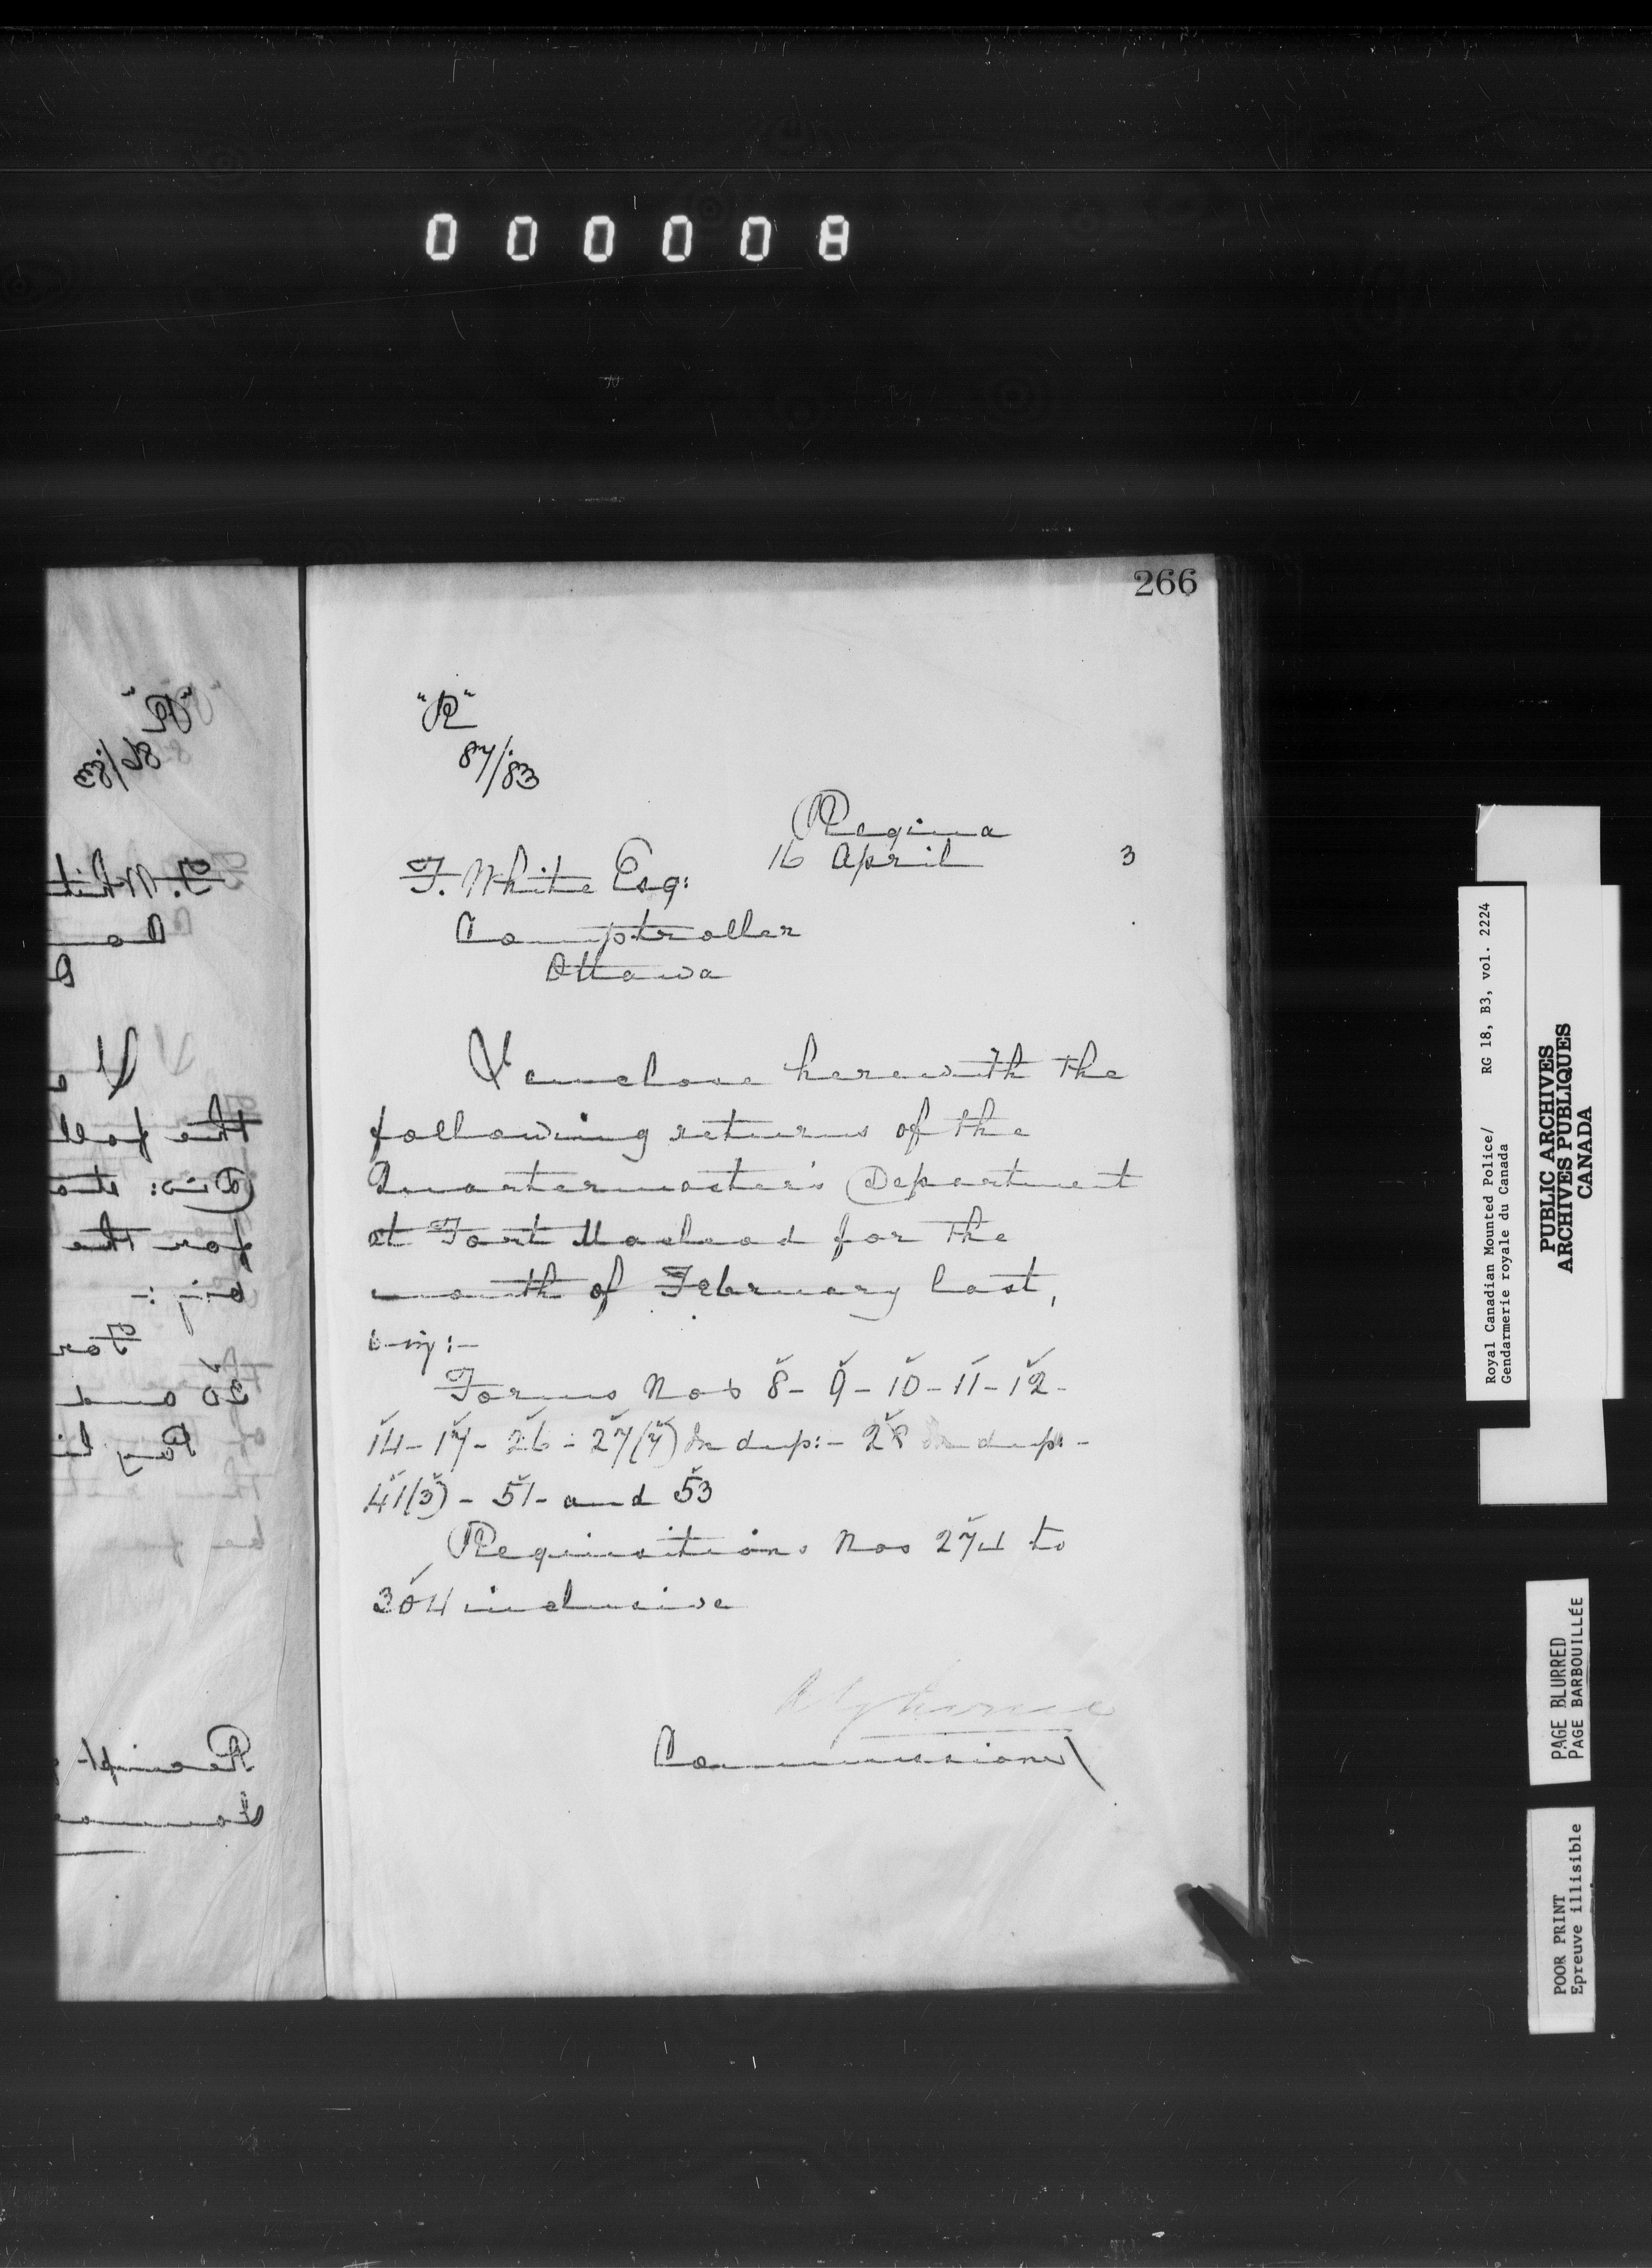 000008
266
"R"
87/83
Regina
16 April 3
F. White Esq:
Comptroller
Ottawa
I enclose herewith the
following returns of the
Quartermaster's Department
at Fort Macleod for the
month of February last,
being:-
Forms Nos 8- 9- 10- 11- 12-
14- 17- 26- 27(7) In dup:- 28 In dup:-
41(3)- 51- and 53
Requisitions Nos 274 to
304 inclusive
Commissioner
"R"
86/83
F. Whit
Com
the foll
for the
For
30 and
Pay li
Receipt
Royal Canadian Mounted Police/ RG 18, B3, vol. 2224
Gendarmerie royale du Canada
PUBLIC ARCHIVES
ARCHIVES PUBLIQUES
CANADA
PAGE BLURRED
PAGE BARBOUILLÉE
POOR PRINT
Epreuve illisible